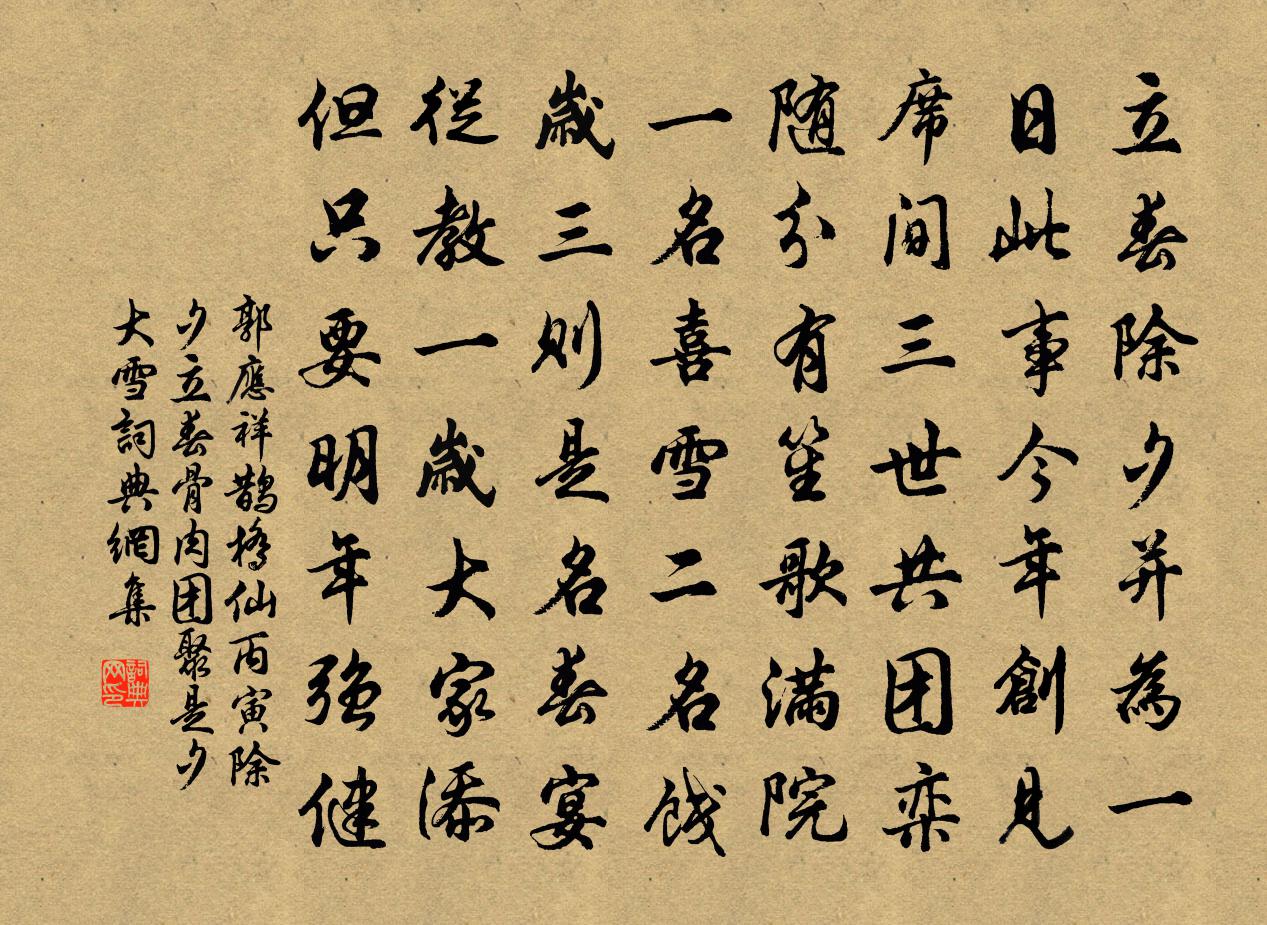 立春除夕并為一
日此事今年創見
席间三世共团栾
随分有笙歌滿院
一名喜雪二名饯
歲三则是名春宴
從教一歲大家添
但只要明年强健
郭應祥鹊橋仙丙寅除
夕立春骨肉团聚是夕
大雪詞典網集
詞典网印